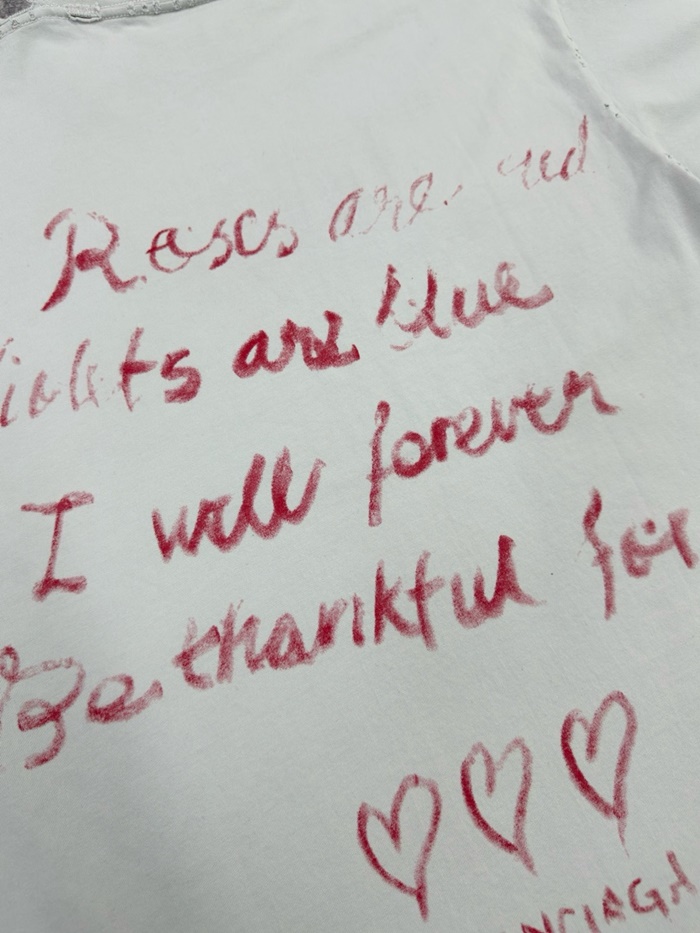 Roses are red
iolets are blue
I will forever
Be thankful for
NCIAGA